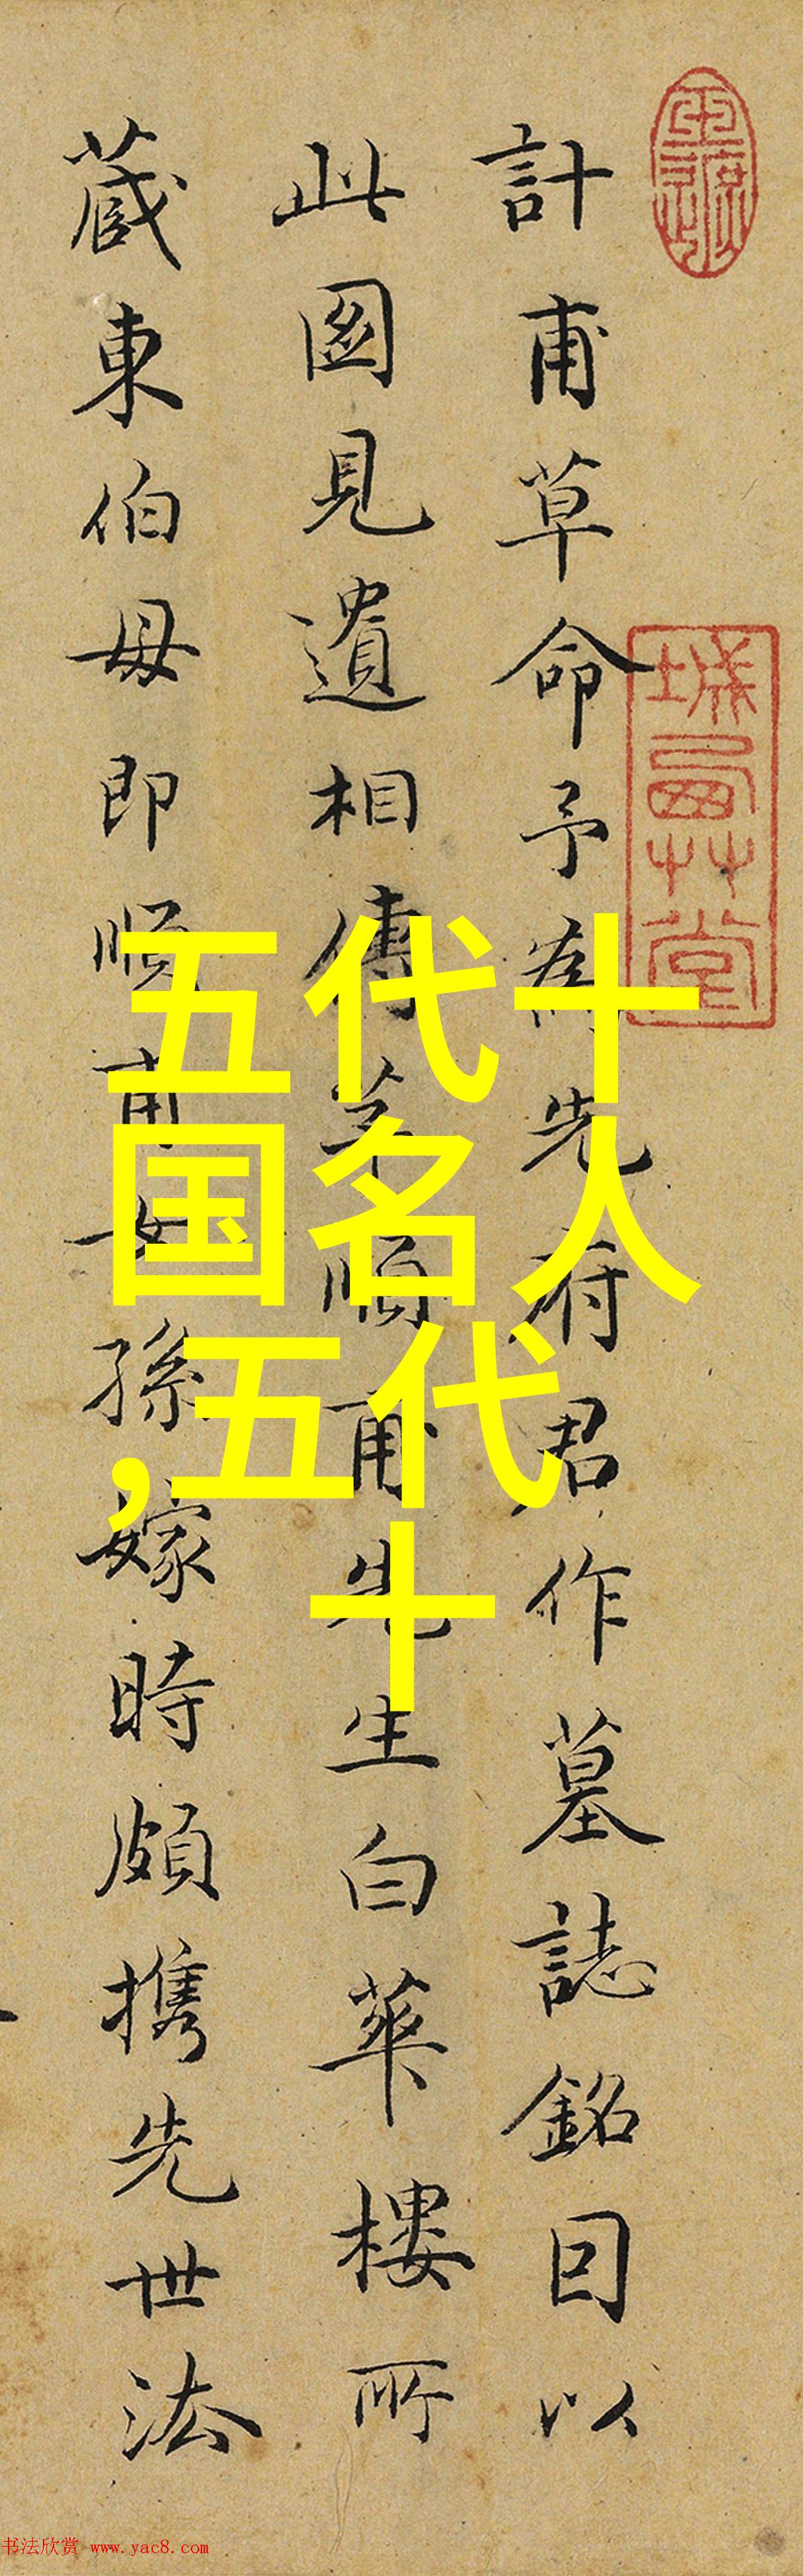 計甫草命予為先府君作墓誌銘因以
此圖見遺相傳茅順甫先生白華樓所
蔵東伯母即順甫女孫嫁時頗携先世法
五代十
国名人
,五代
十
书法欣赏 www.yac8.com